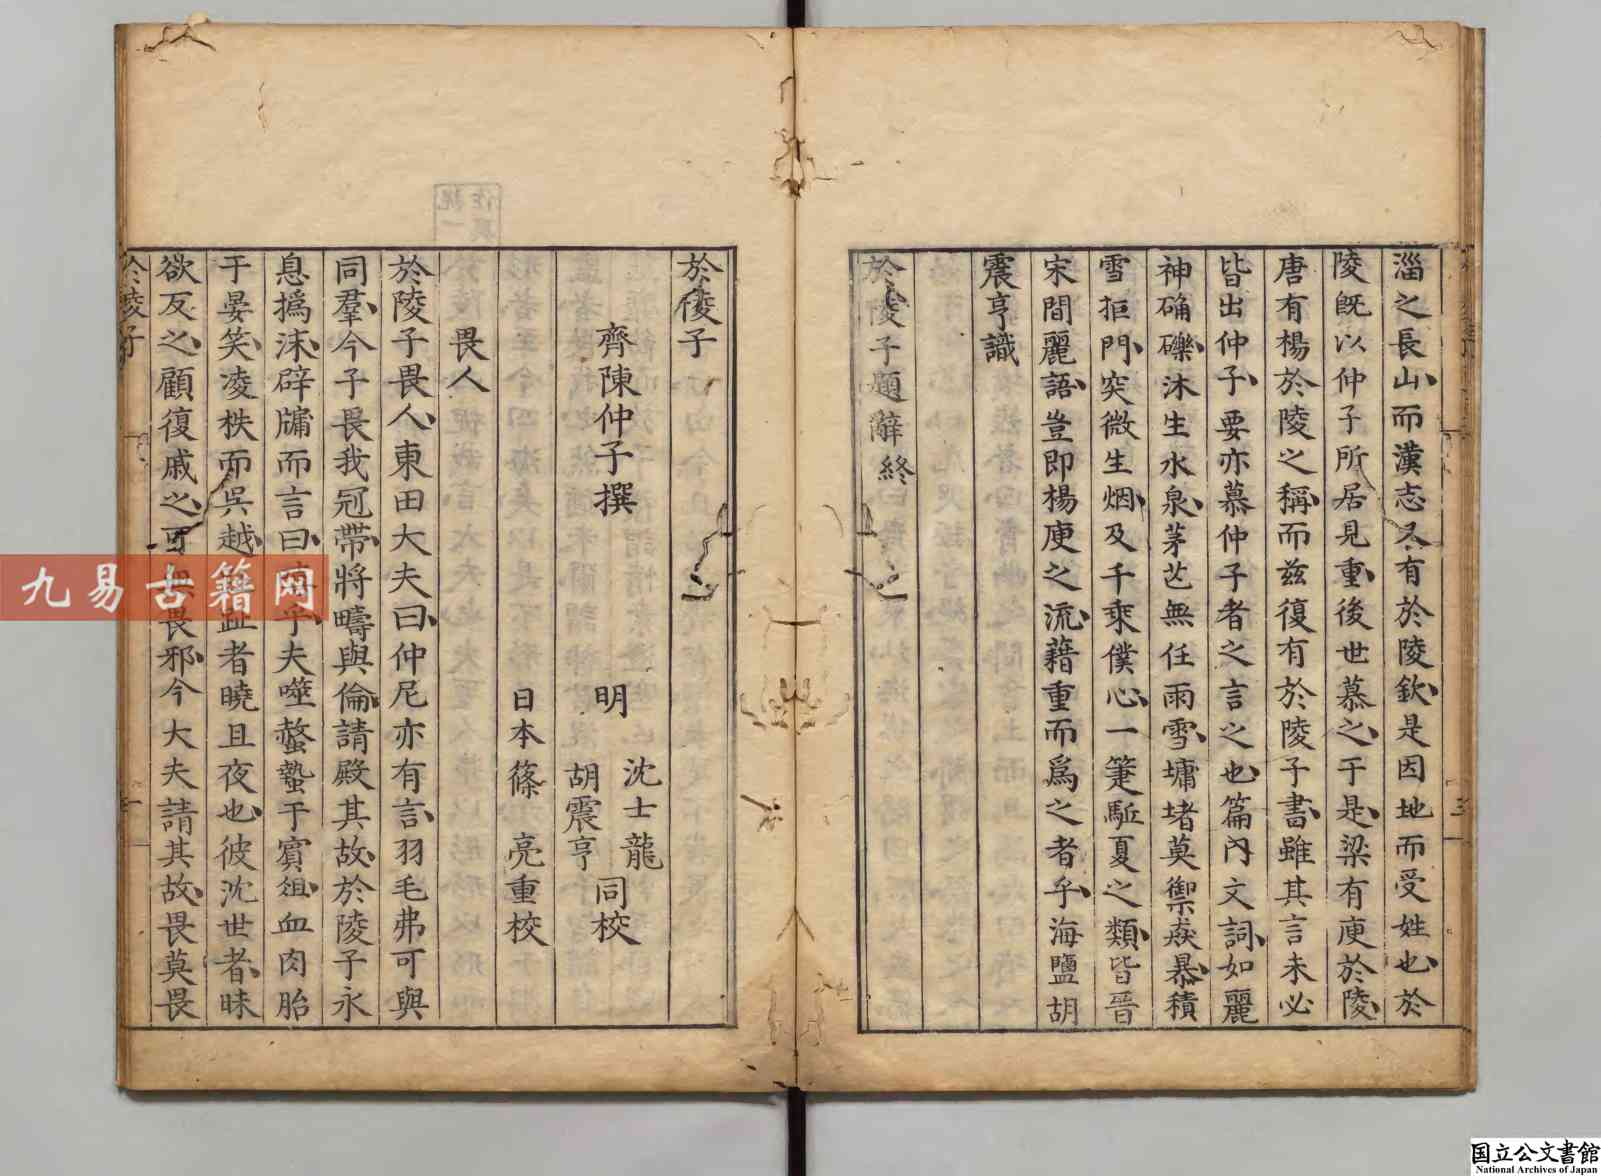 淄之長山而漢志又有於陵欽是因地而受姓也於
陵旣以仲子所居見重後世慕之于是梁有庾於陵
唐有楊於陵之稱而茲復有於陵子書雖其言未必
皆出仲子要亦慕仲子者之言之也篇內文詞如麗
神确礫沐生水泉茅芒無任雨雪墉堵莫禦猋暴積
雪拒門突微生烟及千乘僕心一箑駈夏之類皆晉
宋間麗語豈即楊庾之流藉重而爲之者乎海鹽胡
震亨識
於陵子題辭終
於陵子
齊陳仲子撰
明 沈士龍
胡震亨 同校
日本篠 亮重校
畏人
於陵子畏人東田大夫曰仲尼亦有言羽毛弗可與
同羣今子畏我冠帶將疇與倫請殿其故於陵子永
息撝沫辟牖而言曰乎夫噬螫蟄于賓俎血肉胎
于晏笑凌軼而吳越趾者曉且夜也彼沈世者昧
欲反之顧復戚之可畏邪今大夫請其故畏莫畏
於陵子
九易古籍网
国立公文書館
National Archives of Japan